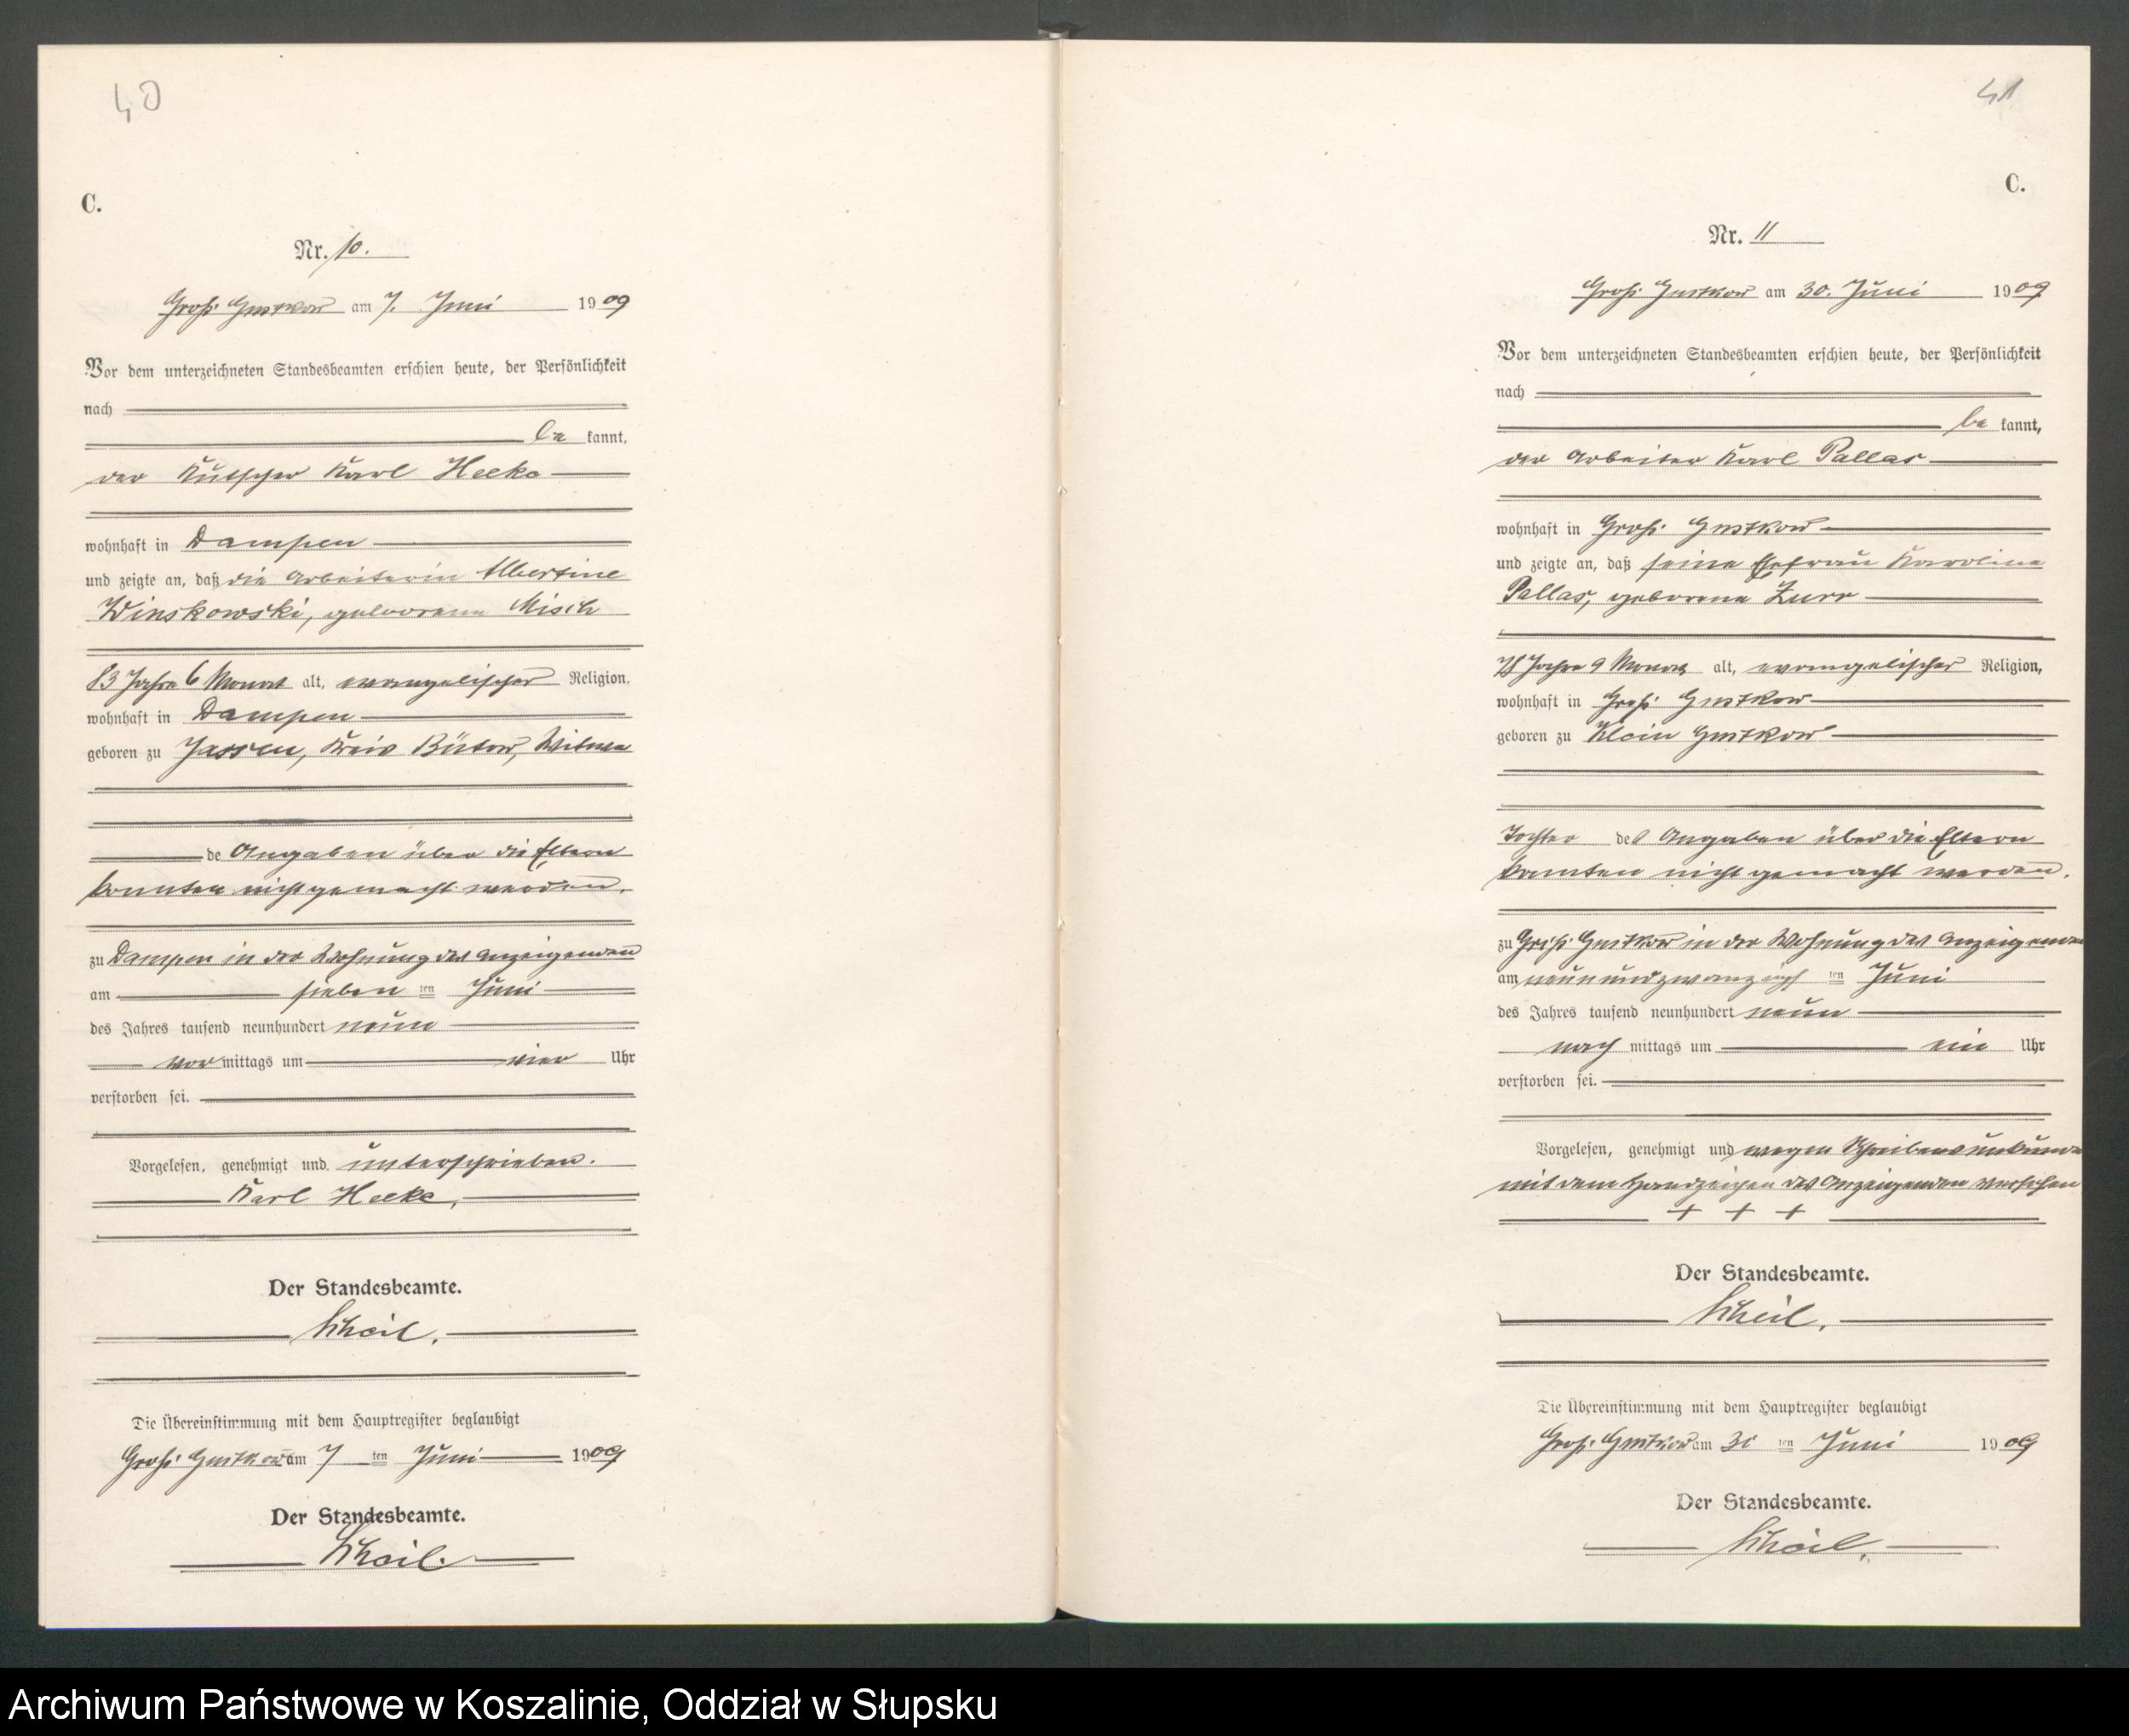 40
C.
Nr. 10.
Groß Gustkow am 7. Juni 1909
Vor dem unterzeichneten Standesbeamten erschien heute, der Persönlichkeit
nach
be kannt,
der Kutscher Karl Heeke
wohnhaft in Dampen
und zeigte an, daß die Arbeiterin Albertine
Winskowski, geborene Misch
83 Jahre 6 Monat alt, evangelischer Religion,
wohnhaft in Dampen
geboren zu Jassen, Kreis Bütow, Witwe
de Angaben über die Eltern
konnten nicht gemacht werden.
zu Dampen in der Wohnung des Anzeigenden
am sieben ten Juni
des Jahres tausend neunhundert neun
vor mittags um vier Uhr
verstorben sei.
Vorgelesen, genehmigt und unterschrieben.
Karl Heeke,
Der Standesbeamte.
Scheil.
Die Übereinstimmung mit dem Hauptregister beglaubigt
Groß Gustkow am 7 ten Juni 1909
Der Standesbeamte.
Scheil.
41
C.
Nr. 11
Groß Gustkow am 30. Juni 1909
Vor dem unterzeichneten Standesbeamten erschien heute, der Persönlichkeit
nach
be kannt,
der Arbeiter Karl Pallas
wohnhaft in Groß Gustkow
und zeigte an, daß seine Ehefrau Karoline
Pallas, geborene Zurr
78 Jahre 9 Monat alt, evangelischer Religion,
wohnhaft in Groß Gustkow
geboren zu Klein Gustkow
Tochter des Angaben über die Eltern
konnten nicht gemacht werden.
zu Groß Gustkow in der Wohnung des Anzeigenden
am neunundzwanzigsten ten Juni
des Jahres tausend neunhundert neun
nach mittags um ein Uhr
verstorben sei.
Vorgelesen, genehmigt und wegen Schreibensunkunde
mit dem Handzeichen des Anzeigenden versehen
+ + +
Der Standesbeamte.
Scheil.
Die Übereinstimmung mit dem Hauptregister beglaubigt
Groß Gustkow am 30 ten Juni 1909
Der Standesbeamte.
Scheil.
Archiwum Państwowe w Koszalinie, Oddział w Słupsku